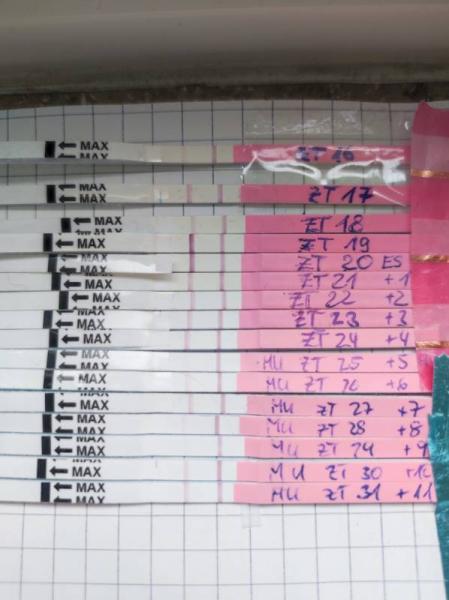 MAX ZT 16
MAX
MAX ZT 17
MAX
MAX ZT 18
MAX ZT 19
MAX ZT 20 ES
MAX ZT 21 +1
MAX ZT 22 +2
MAX ZT 23 +3
MAX ZT 24 +4
MAX MU ZT 25 +5
MAX MU ZT 26 +6
MAX MU ZT 27 +7
MAX MU ZT 28 +8
MAX MU ZT 29 +9
MAX MU ZT 30 +10
MAX MU ZT 31 +11
MAX